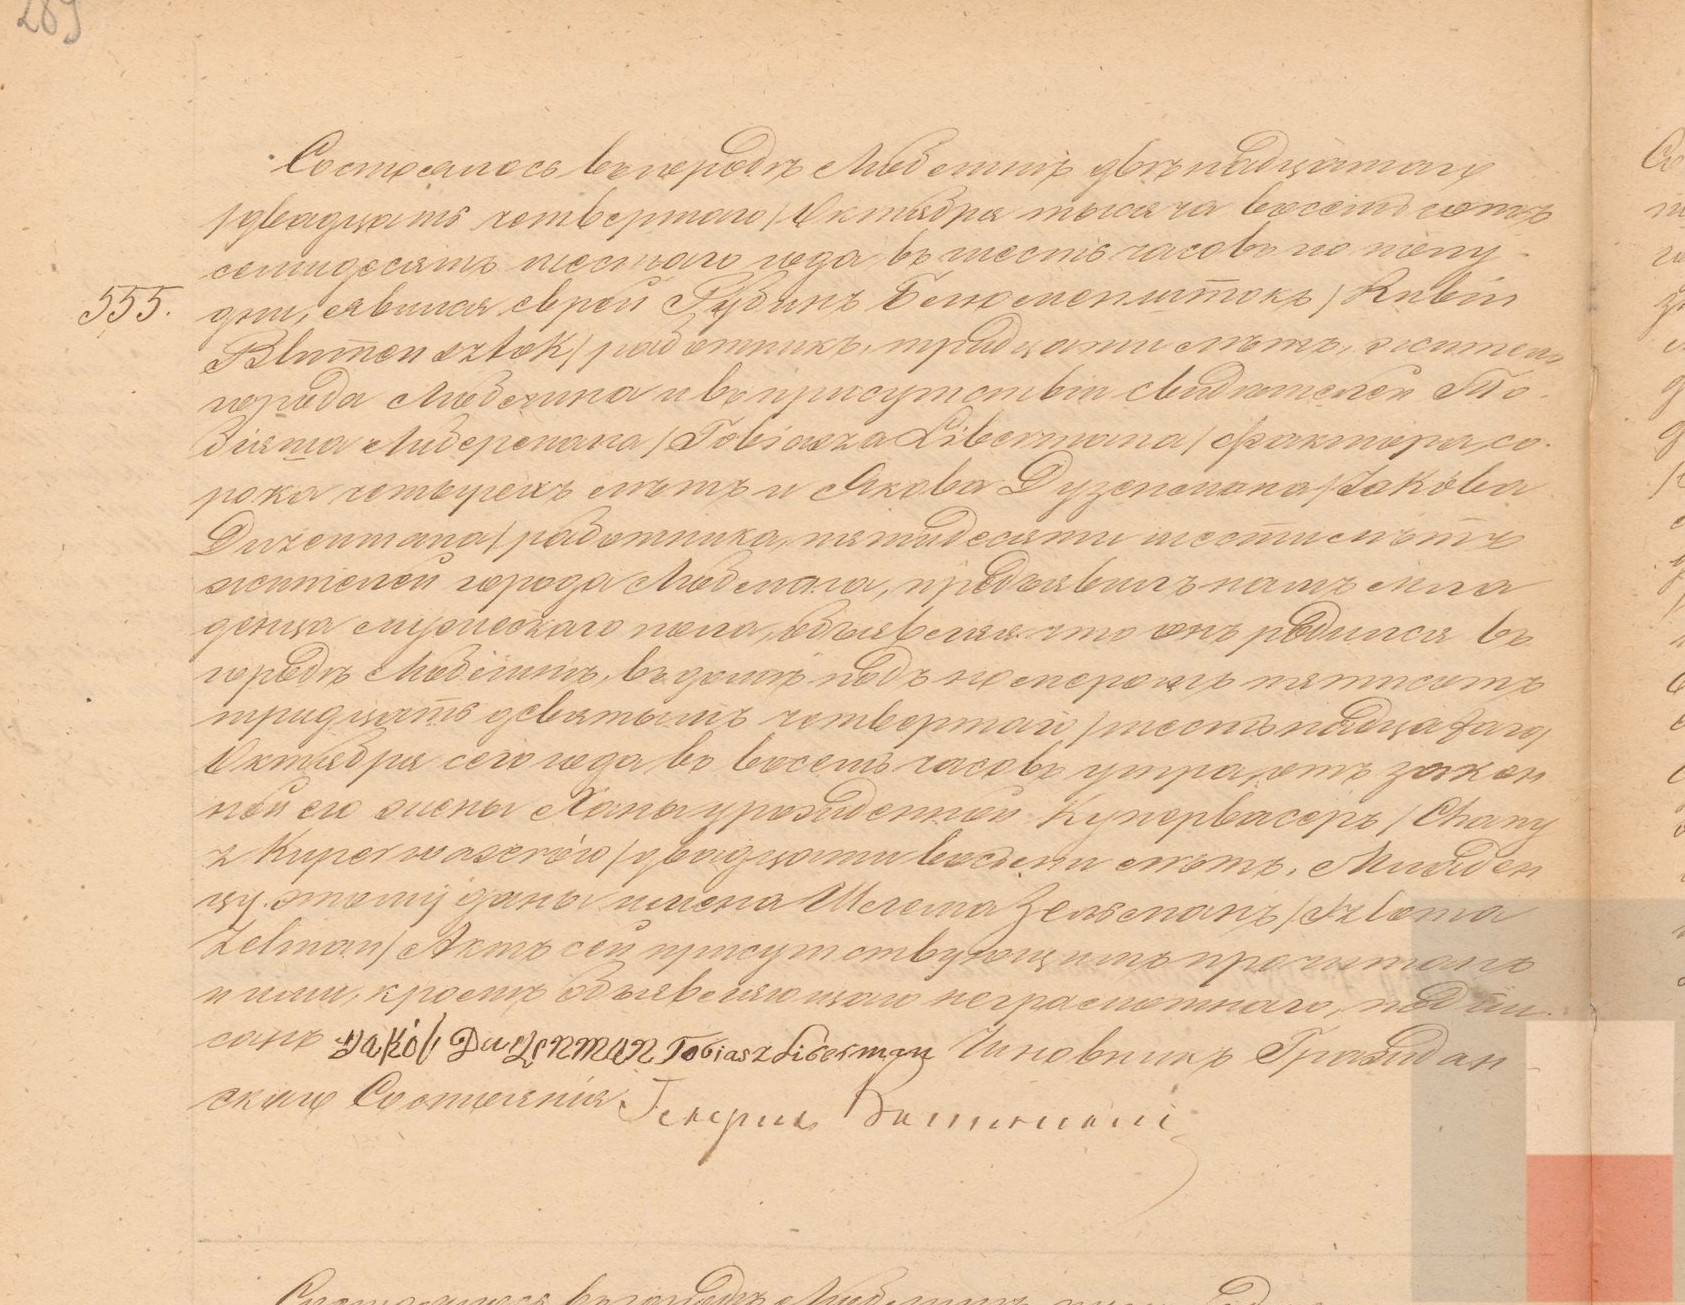 289
Состоялось въ городѣ Люблинѣ двѣнадцатаго
/двадцать четвертаго/ Октября тысяча восемь сотъ
семидесять шестаго года въ шесть часовъ по полу-
555.
дни, явился еврей Рубинъ Блюменштокъ /Rubin
Blumensztok/ работникъ, тридцати лѣтъ, житель
города Люблина и въ присутствіи свидѣтелей То-
біяша Либермана /Tobiasza Libermana/ фактора, со-
рока четырехъ лѣтъ и Якова Дузенмана /Jakóba
Duzenmana/ работника, пятидесяти шести лѣтъ
жителей города Люблина, предъявилъ намъ мла
денца мужескаго пола, объявляя что онъ родился въ
городѣ Люблинѣ, въ домѣ подъ номеромъ пятисотъ
тридцать девятымъ четвертаго /шестнадцатаго/
Октября сего года въ восемь часовъ утра, отъ закон
ной его жены Ханы урожденной Купервасеръ /Chany
z Kuperwaserów/ двадцати восьми лѣтъ. Младен
цу этому даны имена Шлема Зельманъ /Szlema
Zelman/ Актъ сей присутствующимъ прочитанъ
и ими, кромѣ объявляющаго неграмотнаго, подпи-
санъ Jakób Duzenman Tobiasz Liberman Чиновникъ Граждан
скаго Состоянія
Состоялось въ городѣ Люблинѣ